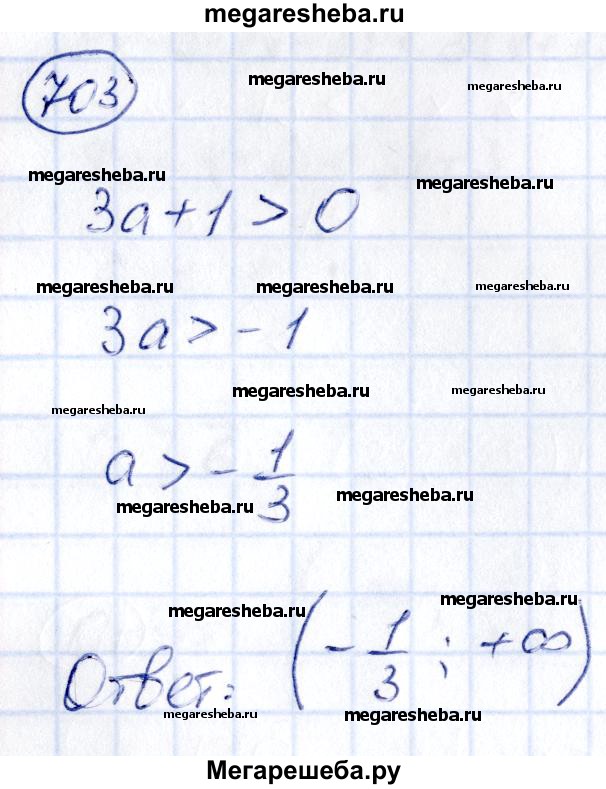 megaresheba.ru
703
megaresheba.ru
megaresheba.ru
megaresheba.ru
megaresheba.ru
3a+1>0
megaresheba.ru
megaresheba.ru
megaresheba.ru
3a>-1
megaresheba.ru
megaresheba.ru
megaresheba.ru
a>-1/3
megaresheba.ru
megaresheba.ru
megaresheba.ru
megaresheba.ru
Ответ: (-1/3; +∞)
megaresheba.ru
megaresheba.ru
Мегарешеба.ру